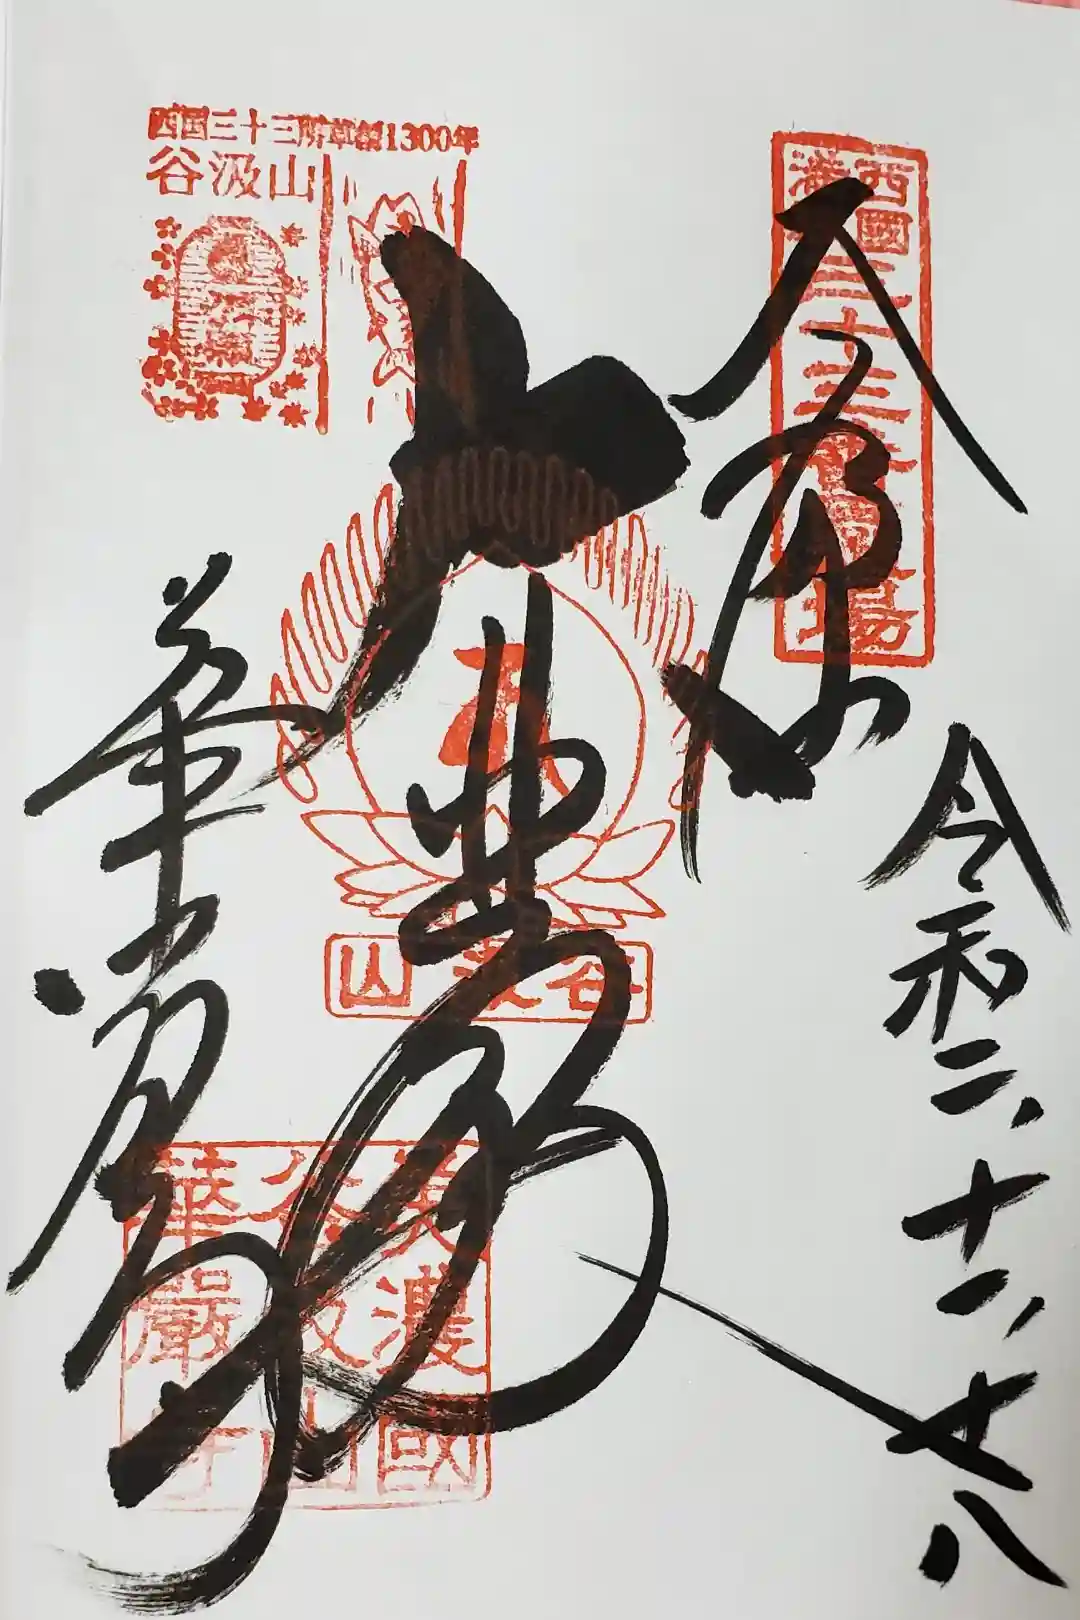 西国三十三所草創1300年
谷汲山
西國
三十三番霊場
奉拝
大悲殿
谷汲山
華厳寺
美濃國
谷汲山
華嚴寺
令和二、十一、廿八